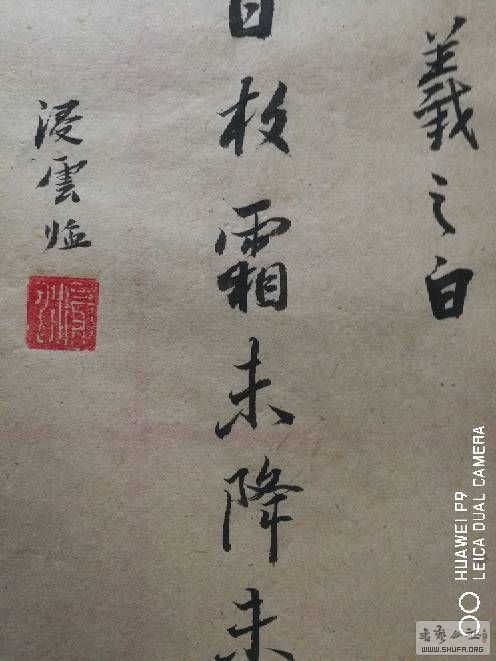 羲之白
枚霜未降未
浸雲临
HUAWEI P9
LEICA DUAL CAMERA
WWW.SHUFA.ORG